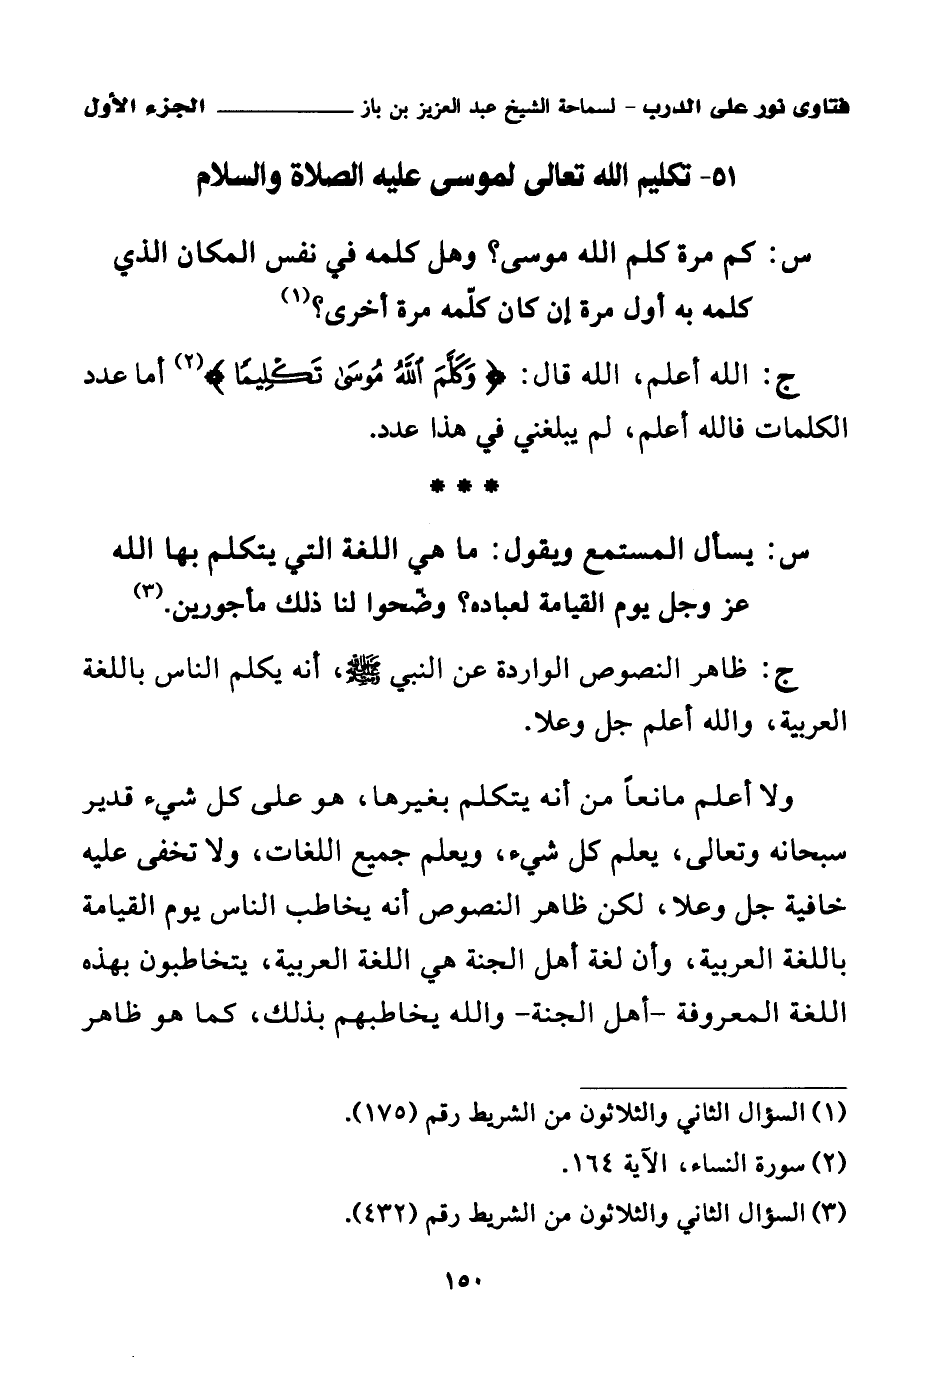 فتاوى نور على الدرب - لسماحة الشيخ عبد العزيز بن باز ــــــــــــ الجزء الأول
٥١- تكليم الله تعالى لموسى عليه الصلاة والسلام
س: كم مرة كلم الله موسى؟ وهل كلمه في نفس المكان الذي
كلمه به أول مرة إن كان كلّمه مرة أخرى؟(١)
ج: الله أعلم، الله قال: ﴿ وَكَلَّمَ ٱللَّهُ مُوسَىٰ تَكْلِيمًا ﴾(٢) أما عدد
الكلمات فالله أعلم، لم يبلغني في هذا عدد.
* * *
س: يسأل المستمع ويقول: ما هي اللغة التي يتكلم بها الله
عز وجل يوم القيامة لعباده؟ وضّحوا لنا ذلك مأجورين.(٣)
ج: ظاهر النصوص الواردة عن النبي ﷺ، أنه يكلم الناس باللغة
العربية، والله أعلم جل وعلا.
ولا أعلم مانعاً من أنه يتكلم بغيرها، هو على كل شيء قدير
سبحانه وتعالى، يعلم كل شيء، ويعلم جميع اللغات، ولا تخفى عليه
خافية جل وعلا، لكن ظاهر النصوص أنه يخاطب الناس يوم القيامة
باللغة العربية، وأن لغة أهل الجنة هي اللغة العربية، يتخاطبون بهذه
اللغة المعروفة -أهل الجنة- والله يخاطبهم بذلك، كما هو ظاهر
(١) السؤال الثاني والثلاثون من الشريط رقم (١٧٥).
(٢) سورة النساء، الآية ١٦٤.
(٣) السؤال الثاني والثلاثون من الشريط رقم (٤٣٢).
١٥٠